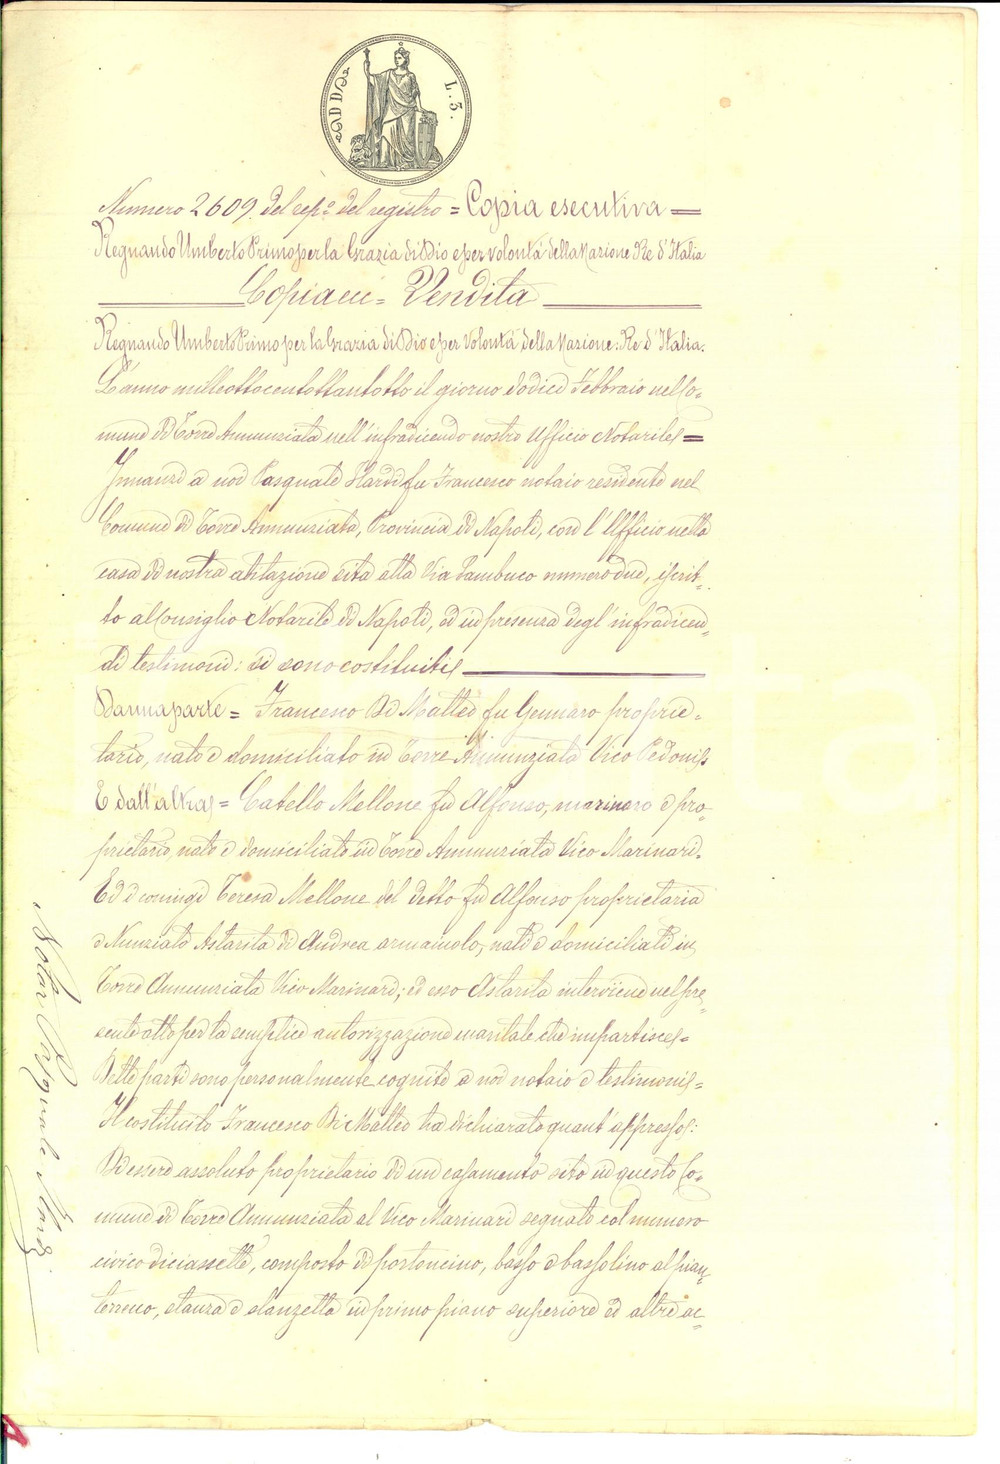 L. 3.
Numero 2609. del repo. del registro = Copia esecutiva =
Regnando Umberto Primo per la Grazia di Dio e per volontà della Nazione Re d'Italia
Vendita
Regnando Umberto Primo per la Grazia di Dio e per Volontà della Nazione: Re d'Italia.
L'anno milleottocentottantotto il giorno dodici Febbraio nel Co=
mune di Torre Annunziata nell'infradicendo nostro Ufficio Notarile =
Innanzi a noi Pasquale fu Francesco notaio residente nel
Comune di Torre Annunziata, Provincia di Napoli, con l'Ufficio nella
casa di nostra abitazione sita alla Via numero due, iscrit=
to al Consiglio Notarile di Napoli, ed in presenza degl'infradicen=
di testimoni: si sono costituiti
Da una parte = Francesco Di Matteo fu Gennaro proprie=
tario, nato e domiciliato in Torre Annunziata Vico Pedoni
E dall'altra = Catello Mellone fu Alfonso, marinaro e pro=
prietario, nato e domiciliato in Torre Annunziata Vico Marinari.
Ed i coniugi Teresa Mellone del detto fu Alfonso proprietaria
e Nunziato Astarita di Andrea armainolo, nati e domiciliati in
Torre Annunziata Vico Marinari; ed esso Astarita interviene nel pre=
sente atto per la semplice autorizzazione maritale che impartisce =
Dette parti sono personalmente cognite a noi notaio e testimoni =
Il costituito Francesco Di Matteo ha dichiarato quant'appresso:
Di essere assoluto proprietario di un casamento sito in questo Co=
mune di Torre Annunziata al Vico Marinari segnato col numero
civico diciassette, composto di portoncino, basso e bassolino al pian=
terreno, stanza e stanzetta in primo piano superiore ed altre ac=
Notar Pasquale